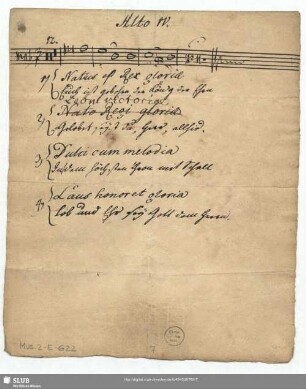 Alto IV.
12.
1) Natus est Rex gloriæ
Euch ist gebohren der König der Ehren
Leoni victoria
2) Nato Regi gloriæ
Gelobet seyst du, Herr, allhie.
3) Dulci cum melodia
In dem höchsten Thron mit Schall
4) Laus honor et gloria
Lob und Ehr sey Gott dem Herrn.
Mus. 2-E-622
SLUB